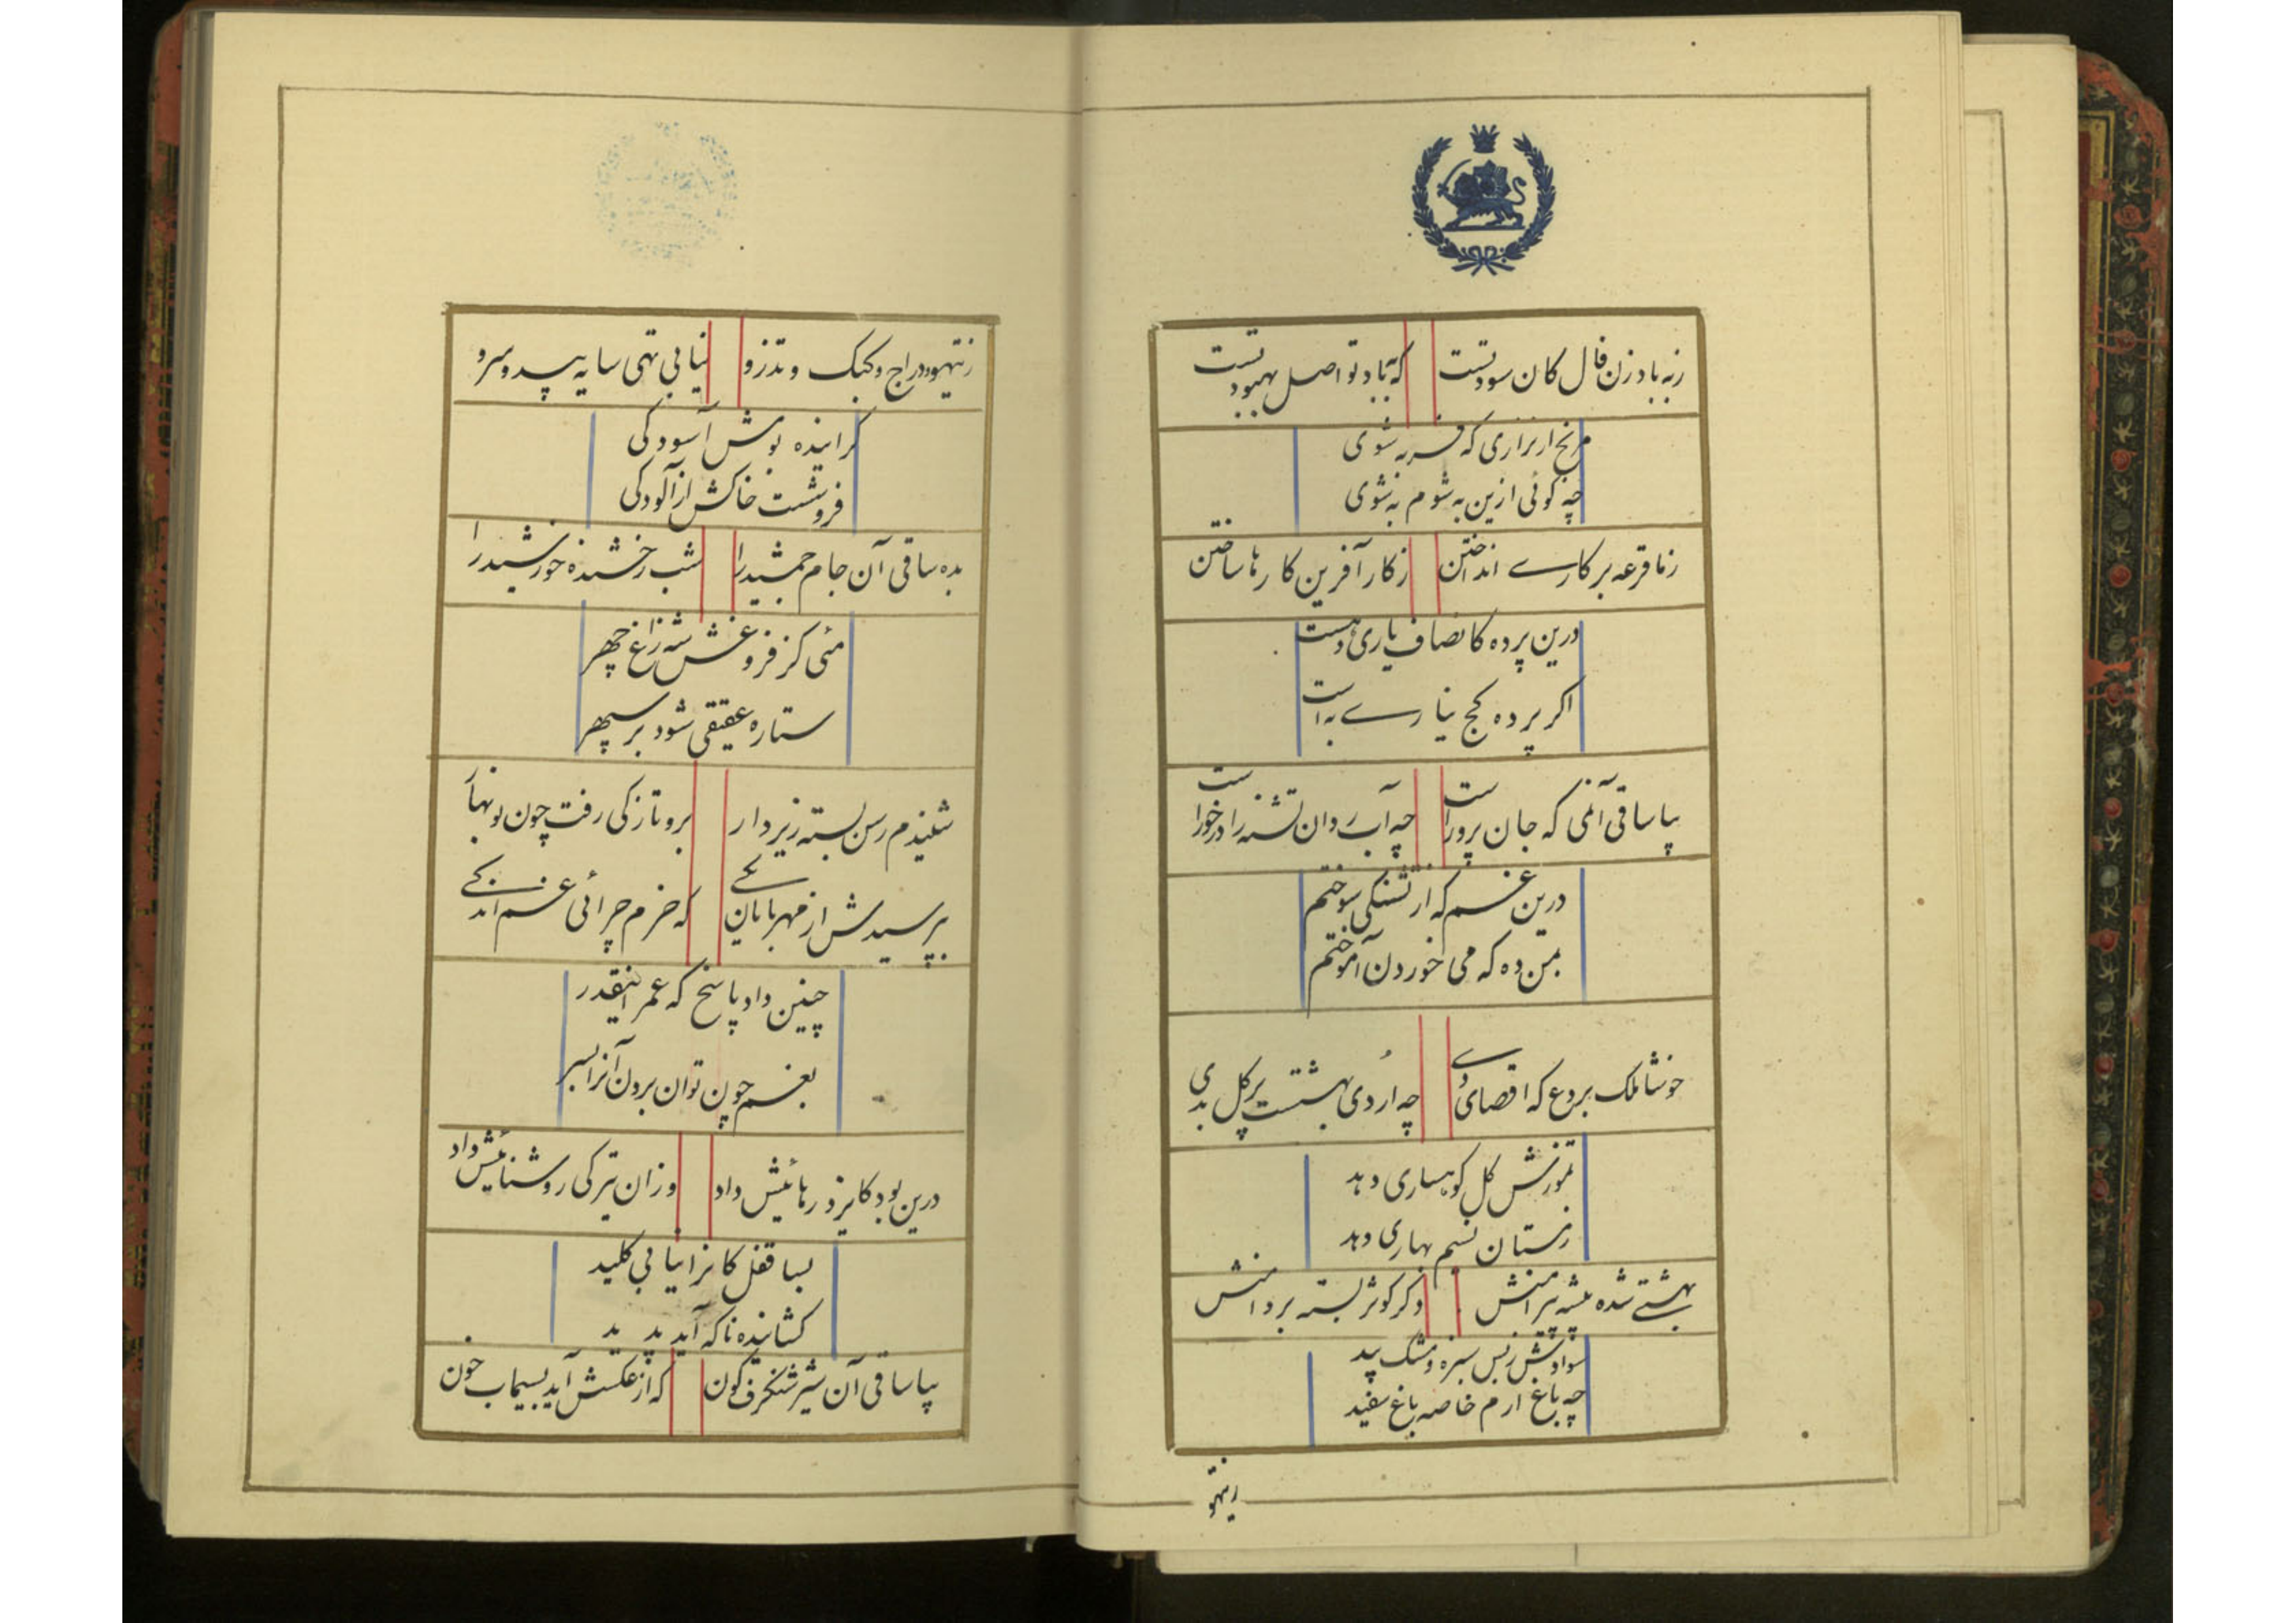 ز به باد زن فال کان سود تست که به باد تو اصل بهبود تست
مرنج ار نزاری که فربه شوی
چه گوئی ازین به شوم به شوی
ز ما قرعه بر کاری انداختن ز کار آفرین کارها ساختن
درین پرده کانصاف یاری ده است
اگر پرده کج نیاری به است
بیا ساقی آن می که جان پرور است چو آب روان تشنه را در خور است
درین غم که از تشنگی سوختم
بمن ده که می خوردن آموختم
خوشا ملک بردع که اقصای وی چه اردی بهشت پر گل بدی
تموزش گل کوهساری دهد
زمستان نسیم بهاری دهد
بهشتی شده بیشه پیرامنش دگر کوثر بسته بر دامنش
سوادش ز بس سبزه و مشک بید
چه باغ ارم خاصه باغ سفید
ز تیهو
ز تیهو و دراج و کبک و تذرو نیابی تهی سایه بید و سرو
گراینده بومش آسودگی
فروشست خاکش از آلودگی
بده ساقی آن جام جمشید را شب رخشنده خورشید را
مئی کز فروغش شه زاغ چهر
ستاره عقیقی شود بر سپهر
شنیدم رسن بسته زیر دار برو تازگی رفت چون نوبهار
بپرسیدش از مهربانان یکی که خرم چرائی غم اندکی
چنین داد پاسخ که عمر اینقدر
بغم چون توان بردن آنرا بسر
درین بود کایزد رهائیش داد وزان تیرگی روشنائیش داد
بسا قفل کانرا نیابی کلید
گشاینده ناگه آید پدید
بیا ساقی آن شیر شنگرف گون که از عکسش آید بسیماب خون